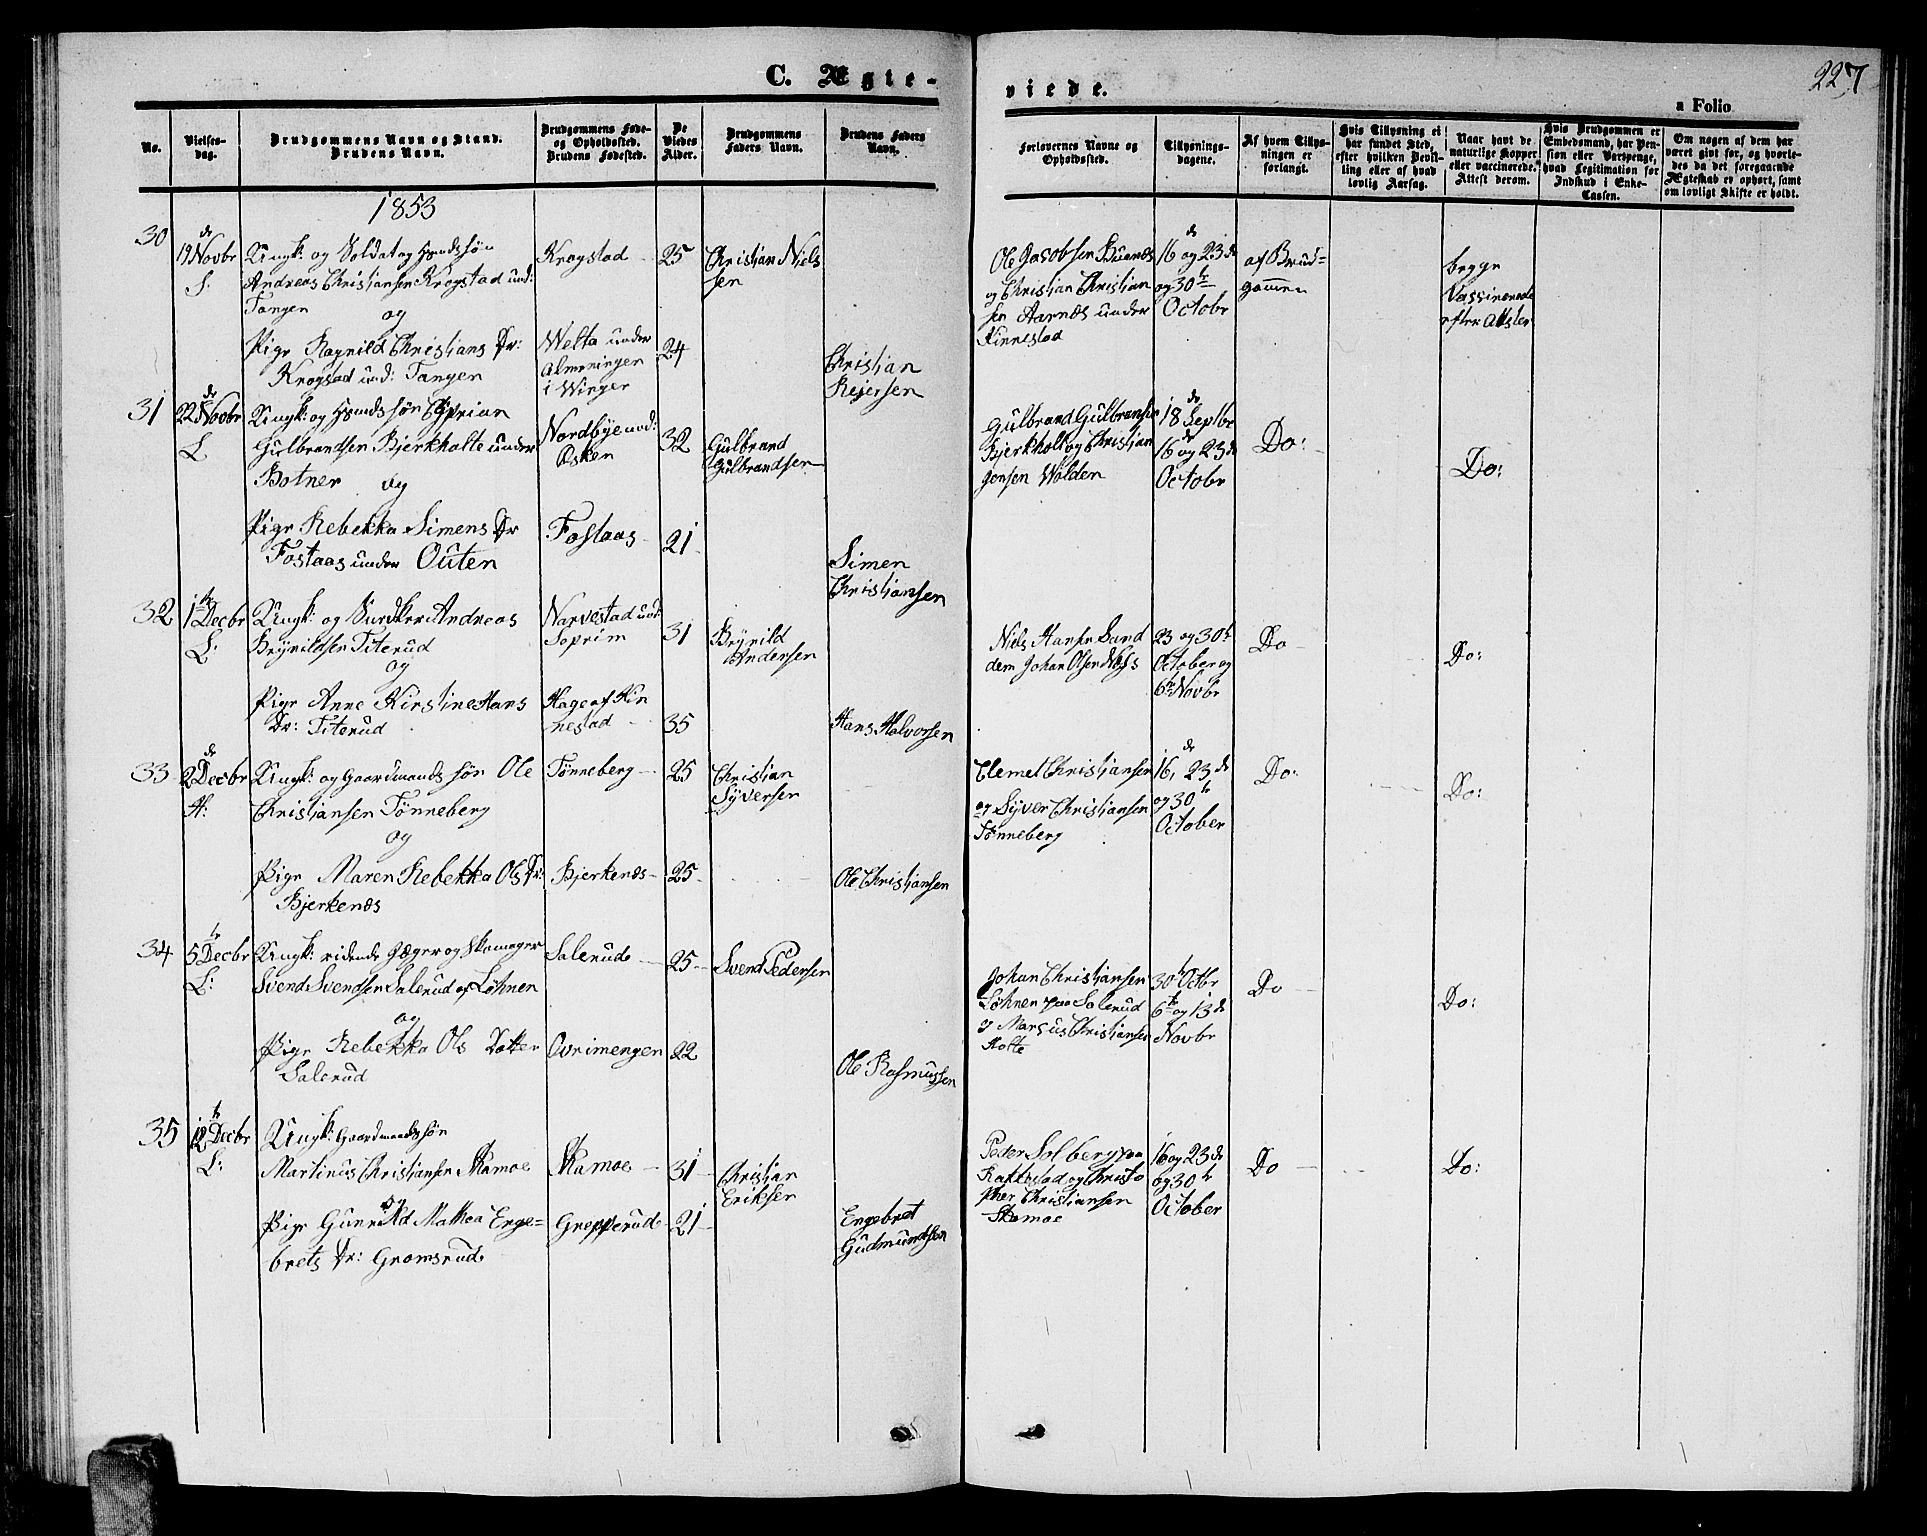 C. Ægte-
viede.
227
a Folio
No.
Vielses-
dag.
Brudgommens Navn og Stand.
Brudens Navn.
Brudgommens Føde-
og Opholdssted.
Brudens Fødested.
De
Viedes
Alder.
Brudgommens
Faders Navn.
Brudens Faders
Navn.
Forlovernes Navne og
Opholdssted.
Tillysnings-
dagene.
Af hvem Tillys-
ningen er
forlangt.
Hvis Tillysning ei
har fundet Sted,
efter hvilken Bevil-
ling eller af hvad
lovlig Aarsag.
Naar havt de
naturlige Kopper
eller vaccinerede.
Attest derom.
Hvis Brudgommen er
Embedsmand, har Pen-
sion eller Vartpenge,
hvad Legitimation for
Indskud i Enke-
Cassen.
Om nogen af dem har
været gift før, og hvorle-
des da det foregaaende
Ægteskab er ophørt, samt
om lovligt Skifte er holdt.
1853
30
Novbr
S:
Ungk: og Soldat og Husmdssøn
Andreas Christiansen Krogstad und:
Tangen og
Pige Ragnild Christians Dr:
Krogstad und: Tangen
Krogstad
Melta under
Almeningen
i Winger
25
24
Christian Niels
sen
Christian
Rejersen
Ole Jacobsen
og Christian Christian
sen Aarnæs under
Kinnestad
16 og 23 de
og 30te
Octobr
af Brud=
gommen
begge
Vaccinerede
efter Attester
31
22 de Novbr
L.
Ungk: og Husmdssøn Cyprian
Gulbrandsen Bjerkholte under
Botner og
Pige Rebekka Simens Dr
Fostaas under Outen
Nordbye und:
Øsken
Fostaas
32
21
Gulbrand
Gulbrandsen
Simen
Christiansen
Gulbrand Gulbransen
Bjerkholt og Christian
Jensen Wolden
18 de Septbr
16 og 23 de
Octobr
Do:
Do:
32
1te Decbr
L:
Ungk: og Andreas
Brynildsen Titerud
og
Pige Anne Kirstine Hans
Dr: Titerud
Narvestad und:
Soprim
Hage af Kin
nestad
31
35
Brynild
Andersen
Hans Halvorsen
Niels Hansen Sand
dem Johan Olsen Næss
23 og 30te
October og
6te Novbr
Do
Do:
33
2 de Decbr
H:
Ungk: og Gaardmands søn Ole
Christiansen Tønneberg
og
Pige Maren Rebekka Ols Dr:
Bjerkenæs
Tønneberg
Bjerkenæs
25
25
Christian
Syversen
Ole Christiansen
Clemet Christiansen
og Syver Christiansen
Tønneberg
16, 23 de
og 30te
October
Do:
Do:
34
5te Decbr
L:
Ungk: ridende Jæger og Skomager
Svend Svendsen Salerud af Løhnen
og
Pige Rebekka Ols Datter
Salerud
Salerud
Ovrimengen
25
22
Svend Pedersen
Ole Rasmussen
Johan Christiansen
Løhnen paa Salerud
og Marcus Christiansen
Holte
30te Octbr
6te og 13 de
Novbr
Do
Do:
35
12te Decbr
L:
Ungk: Gaardmandssøn
Martinus Christiansen Skamoe
og
Pige Gunnild Mathea Enge=
brets Dr: Gromsrud
Skamoe
Grepperud
31
21
Christian
Eriksen
Engebret
Gudmundsen
Peder Solberg paa
Rakkestad og Christo
pher Christiansen
Skamoe
16 og 23 de
og 30te
October
Do
Do: